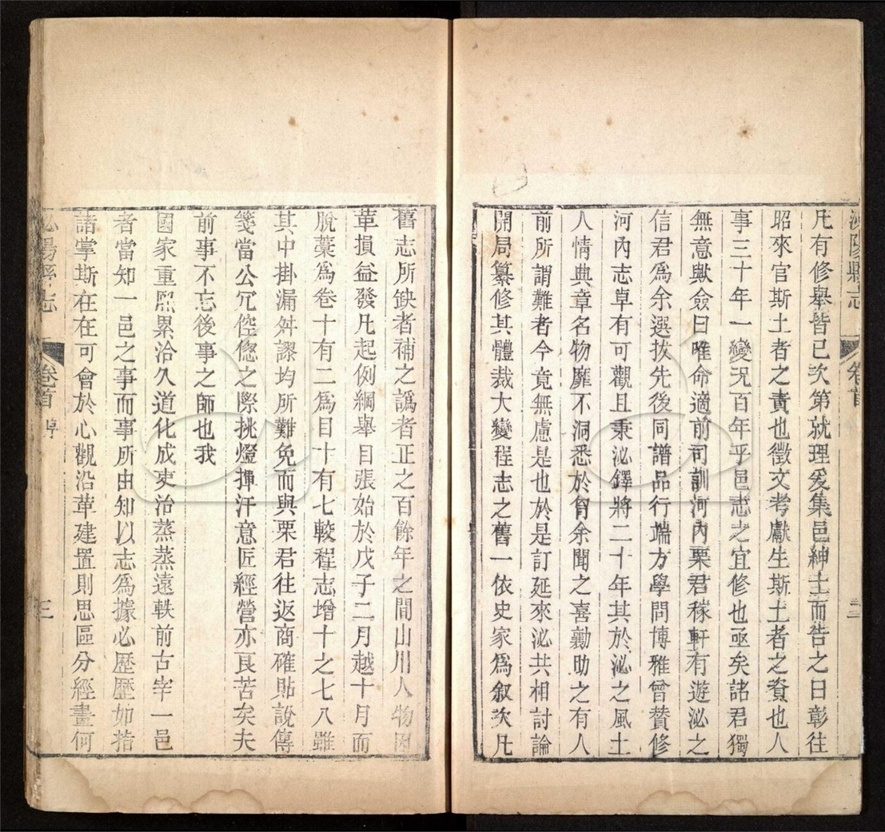 泌陽縣志
卷首
二
凡有修舉皆已次第就理爰集邑紳士而告之曰彰往
昭來官斯土者之責也徵文考獻生斯土者之資也人
事三十年一變况百年乎邑志之宜修也亟矣諸君獨
無意歟僉曰唯命適前司訓河內栗君稼軒有遊泌之
信君爲余選拔先後同譜品行端方學問博雅曾贊修
河內志草有可觀且秉泌鐸將二十年其於泌之風土
人情典章名物靡不洞悉於胷余聞之喜勷助之有人
前所謂難者今竟無慮是也於是訂延來泌共相討論
開局纂修其體裁大變程志之舊一依史家爲叙次凡
舊志所缺者補之譌者正之百餘年之間山川人物因
革損益發凡起例綱舉目張始於戊子二月越十月而
脫藁爲卷十有二爲目十有七較程志增十之七八雖
其中掛漏舛謬均所難免而與栗君往返商確貼說傳
箋當公冗倥傯之際挑燈揮汗意匠經營亦良苦矣夫
前事不忘後事之師也我
國家重熙累洽久道化成吏治蒸蒸遠軼前古宰一邑
者當知一邑之事而事所由知以志爲據必歷歷如指
諸掌斯在在可會於心觀沿革建置則思區分經畫何
泌陽縣志
卷首
序
三